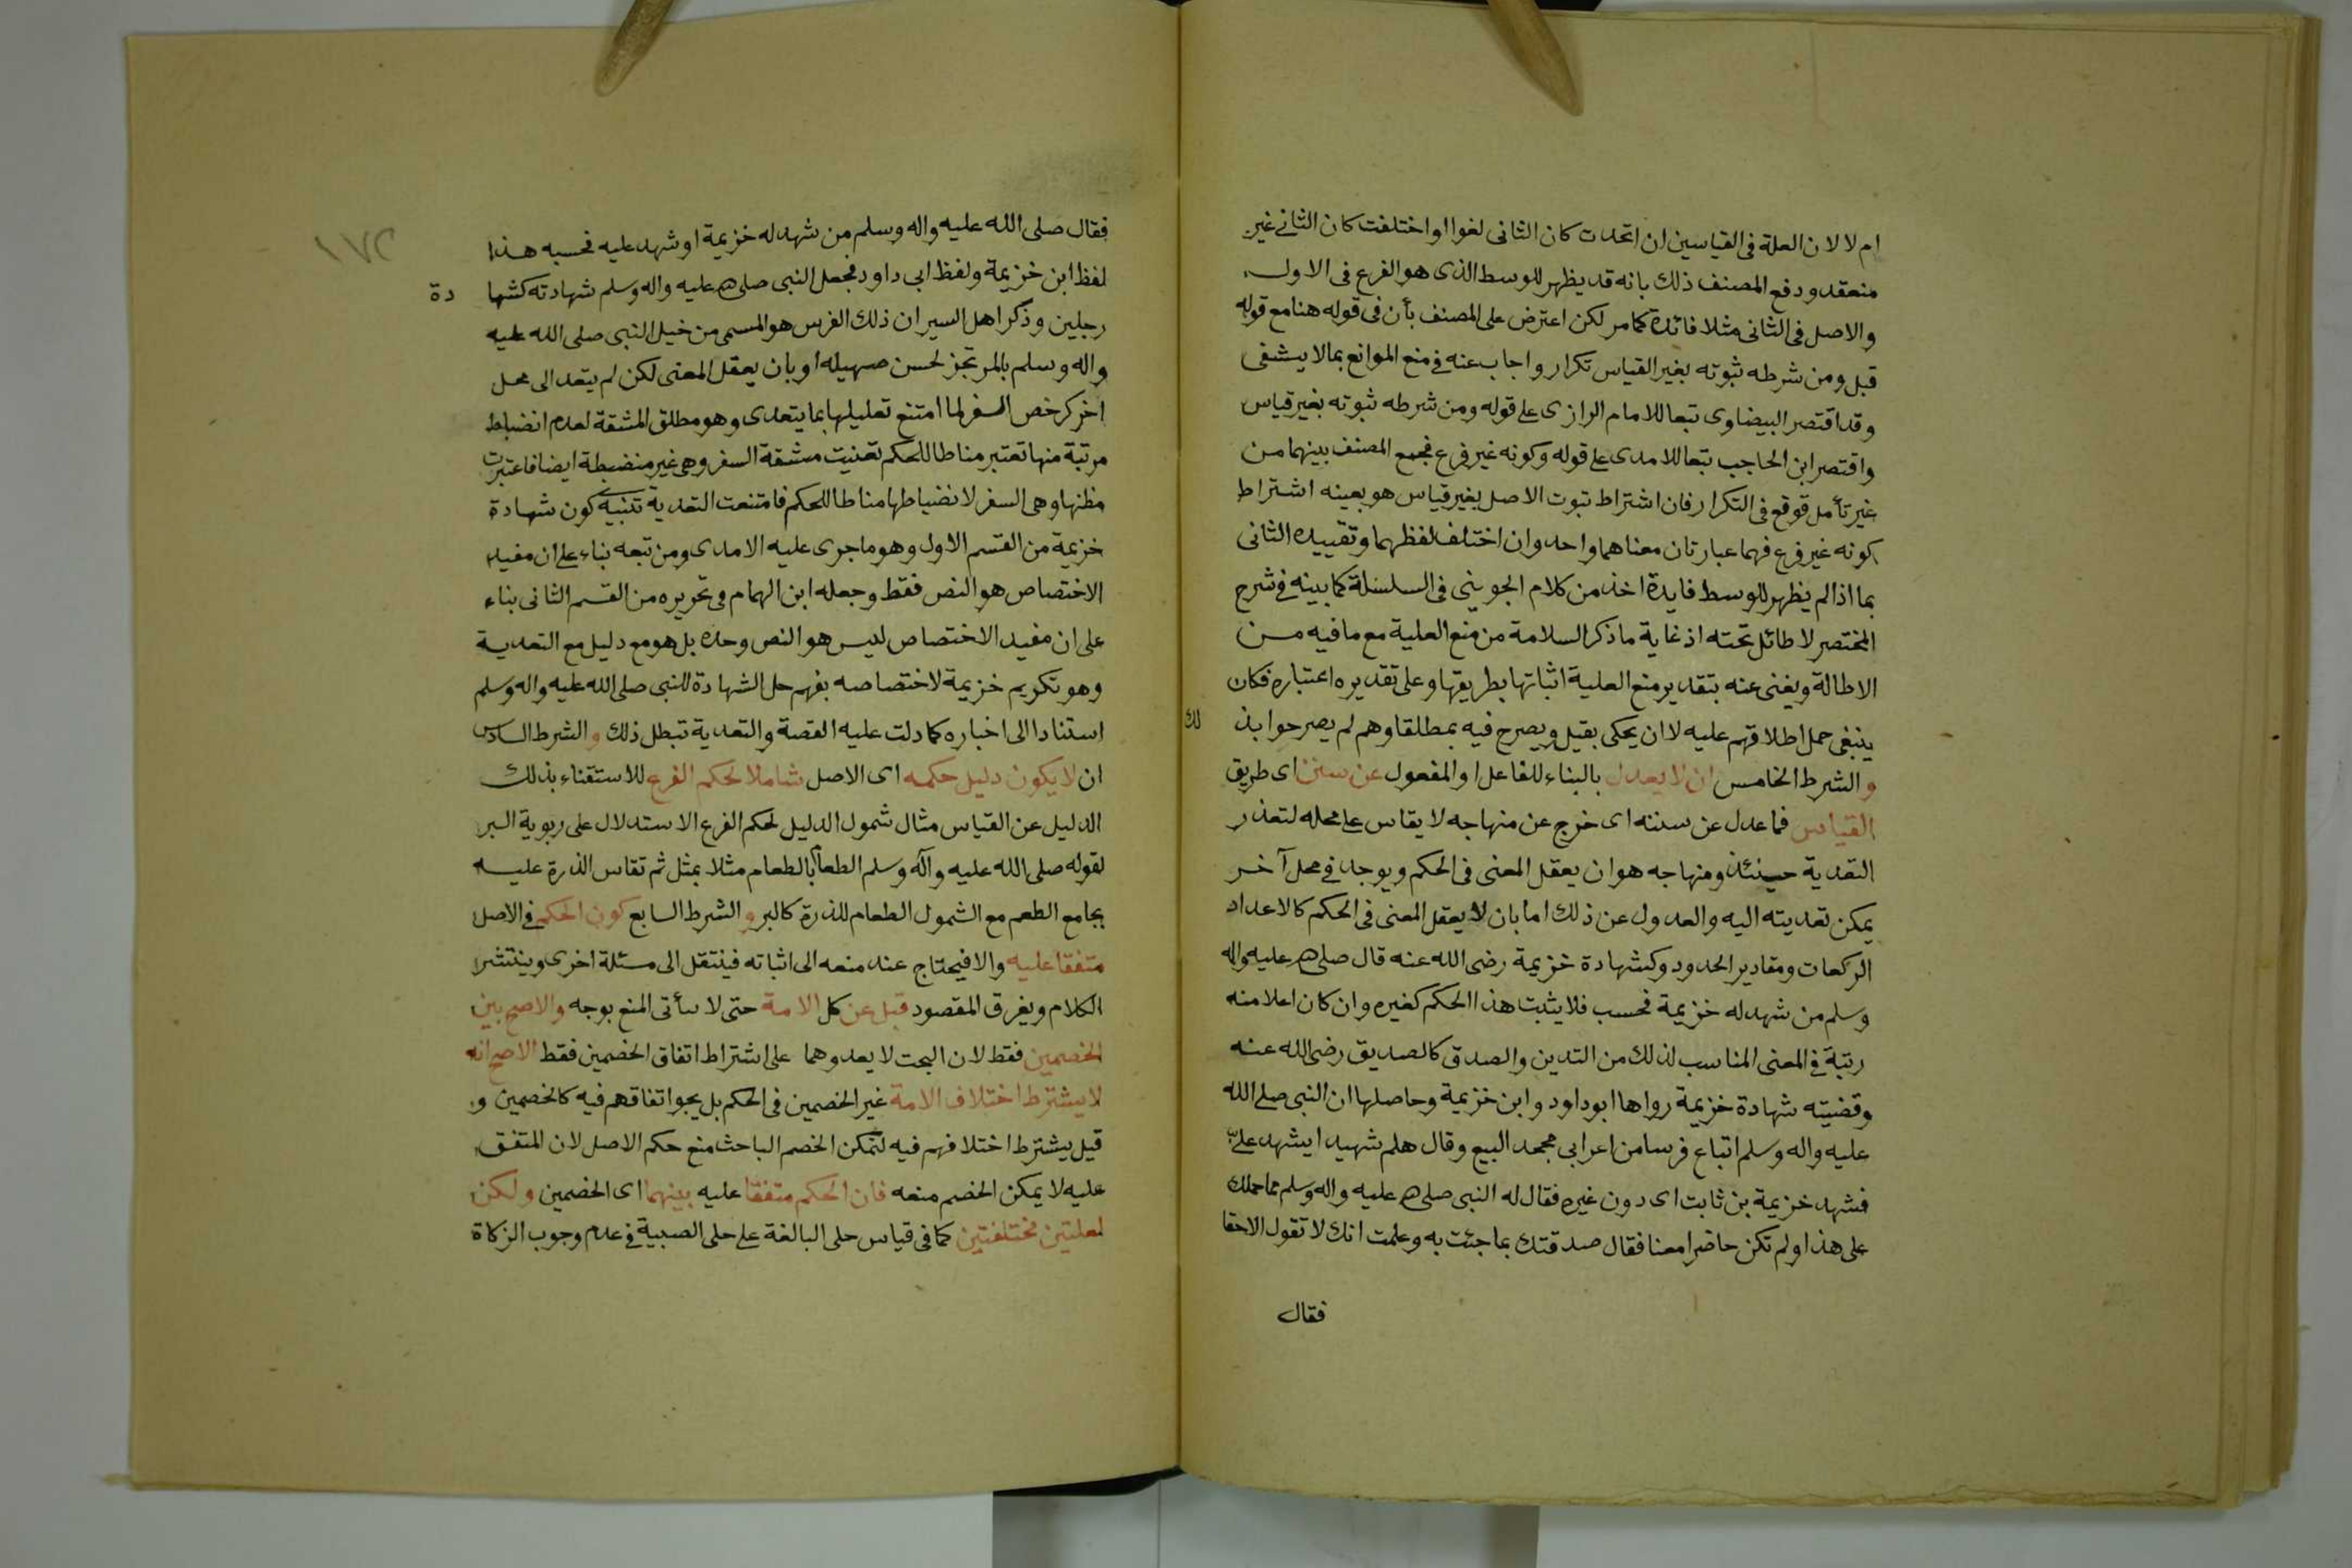 ام لا لان العلة فى القياسين ان اتحدت كان الثانى لغوا او اختلفت كان الثانى غير
منعقد ودفع المصنف ذلك بانه قد يظهر للوسط الذى هو الفرع فى الاول
والاصل فى الثانى مثلا فائدة كما مر لكن اعترض على المصنف بأن فى قوله هنا مع قوله
قبل ومن شرطه ثبوته بغير القياس تكرار واجاب عنه فى منع الموانع بما لا يشفى
وقد اقتصر البيضاوى تبعا للامام الرازى على قوله ومن شرطه ثبوته بغير قياس
واقتصر ابن الحاجب تبعا للامدى على قوله وكونه غير فرع فجمع المصنف بينهما من
غير تأمل فوقع فى التكرار فان اشتراط ثبوت الاصل بغير قياس هو بعينه اشتراط
كونه غير فرع فهما عبارتان معناهما واحد وان اختلف لفظهما وتقييده الثانى
بما اذا لم يظهر للوسط فايدة اخذ من كلام الجوينى فى السلسلة كما بينه فى شرح
المختصر لا طائل تحته اذ غاية ما ذكر السلامة من منع العلية مع ما فيه من
الاطالة ويغنى عنه بتقدير منع العلية اثباتها بطريقها وعلى تقديره اعتباره فكان
ينبغى حمل اطلاقهم عليه لا ان يحكى بقيل ويصرح فيه بمطلقا وهم لم يصرحوا بذ
لك
والشرط الخامس ان لا يعدل بالبناء للفاعل او المفعول عن سنن اى طريق
القياس فما عدل عن سننه اى خرج عن منهاجه لا يقاس على محله لتعذر
التعدية حينئذ ومنهاجه هو ان يعقل المعنى فى الحكم ويوجد فى محل آخر
يمكن تعديته اليه والعدول عن ذلك اما بان لا يعقل المعنى فى الحكم كالاعداد
الركعات ومقادير الحدود وكشهادة خزيمة رضى الله عنه قال صلى الله عليه واله
وسلم من شهد له خزيمة فحسب فلا يثبت هذا الحكم كغيره وان كان اعلا منه
رتبة فى المعنى المناسب لذلك من التدين والصدق كالصديق رضى الله عنه
وقضيته شهادة خزيمة رواها ابوداود وابن خزيمة وحاصلها ان النبى صلى الله
عليه واله وسلم ابتاع فرسا من اعرابى فجحد البيع وقال هلم شهيدا يشهد علىّ
فشهد خزيمة بن ثابت اى دون غيره فقال له النبى صلى الله عليه واله وسلم مما حملك
على هذا ولم تكن حاضرا معنا فقال صدقتك بما جئت به وعلمت انك لا تقول الا حقا
فقال
فقال صلى الله عليه واله وسلم من شهد له خزيمة او شهد عليه فحسبه هذا
لفظ ابن خزيمة ولفظ ابى داود فجعل النبى صلى الله عليه واله وسلم شهادته كشها دة
رجلين وذكر اهل السير ان ذلك الفرس هو المسمى من خيل النبى صلى الله عليه
واله وسلم بالمرتجز لحسن صهيله او بان يعقل المعنى لكن لم يتعد الى محل
اخر كرخص السفر لما امتنع تعليلها بما يتعدى وهو مطلق المشقة لعدم انضباط
مرتبة منها تعتبر مناطا للحكم تعنيت مشقة السفر وهى غير منضبطة ايضا فاعتبرت
مظنها وهى السفر لانضباطها مناطا للحكم فامتنعت التعدية تنبيه كون شهادة
خزيمة من القسم الاول وهو ما جرى عليه الامدى ومن تبعه بناء على ان مفيد
الاختصاص هو النص فقط وجعله ابن الهمام فى تحريره من القسم الثانى بناء
على ان مفيد الاختصاص ليس هو النص وحده بل هو مع دليل مع التعدية
وهو تكريم خزيمة لاختصاصه بفهم حل الشهادة للنبى صلى الله عليه واله وسلم
استنادا الى اخباره كما دلت عليه القصة والتعدية تبطل ذلك والشرط السادس
ان لا يكون دليل حكمه اى الاصل شاملا لحكم الفرع للاستغناء بذلك
الدليل عن القياس مثال شمول الدليل لحكم الفرع الاستدلال على ربوية البر
لقوله صلى الله عليه وآله وسلم الطعام بالطعام مثلا بمثل ثم تقاس الذرة عليه
بجامع الطعم مع الشمول الطعام للذرة كالبر والشرط السابع كون الحكم فى الاصل
متفقا عليه والا فيحتاج عند منعه الى اثباته فينتقل الى مسئلة اخرى وينتشر
الكلام ويغرق المقصود قبل عن كل الامة حتى لا يتأتى المنع بوجه والاصح بين
الخصمين فقط لان البحث لا يعدوهما على اشتراط اتفاق الخصمين فقط الاصح انه
لا يشترط اختلاف الامة غير الخصمين فى الحكم بل يجوا تفاقهم فيه كالخصمين و
قيل يشترط اختلافهم فيه لتمكن الخصم الباحث منع حكم الاصل لان المتفق
عليه لا يمكن الخصم منعه فان الحكم متفقا عليه بينهما اى الخصمين ولكن
لعلتين مختلفتين كما فى قياس حلى البالغة على حلى الصبية فى عدم وجوب الزكاة